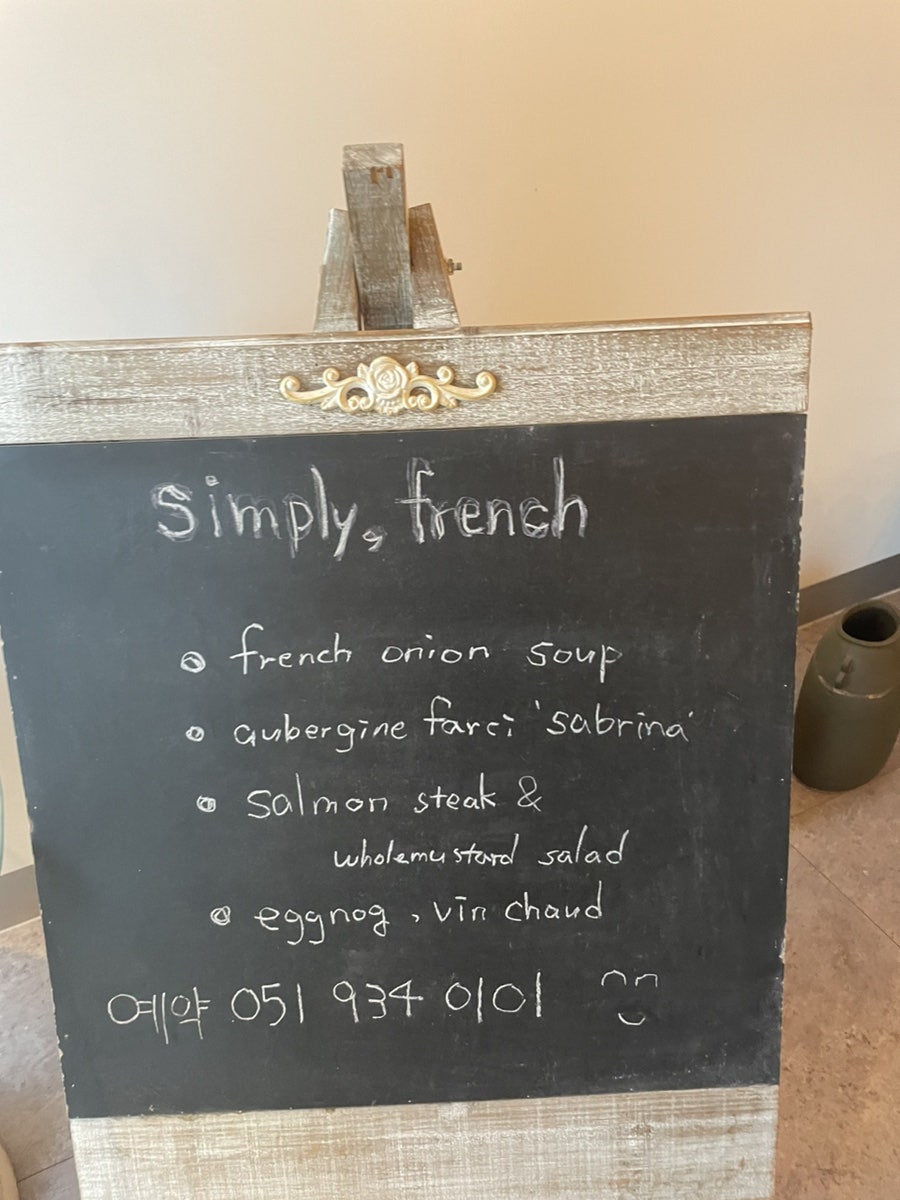 Simply, french
french onion soup
aubergine farci 'sabrina'
salmon steak &
wholemustard salad
eggnog, vin chaud
예약 051 934 0101